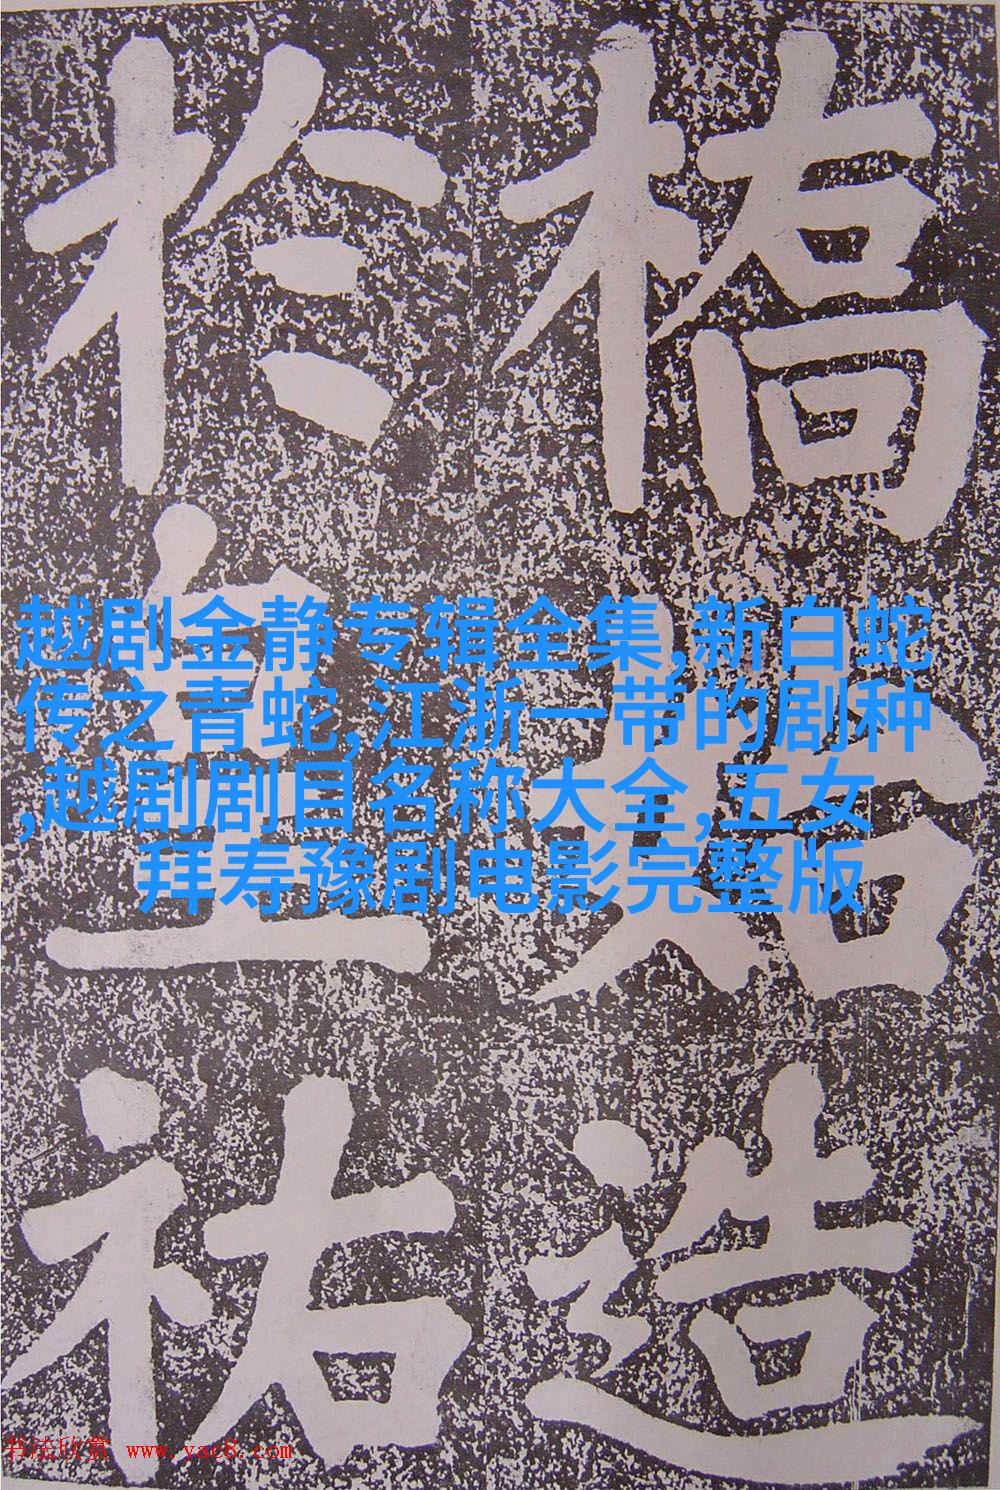 橋始造
於皇祐
越剧金静专辑全集,新白蛇
传之青蛇,江浙一带的剧种
,越剧剧目名称大全,五女
拜寿豫剧电影完整版
书法欣赏 www.yac8.com